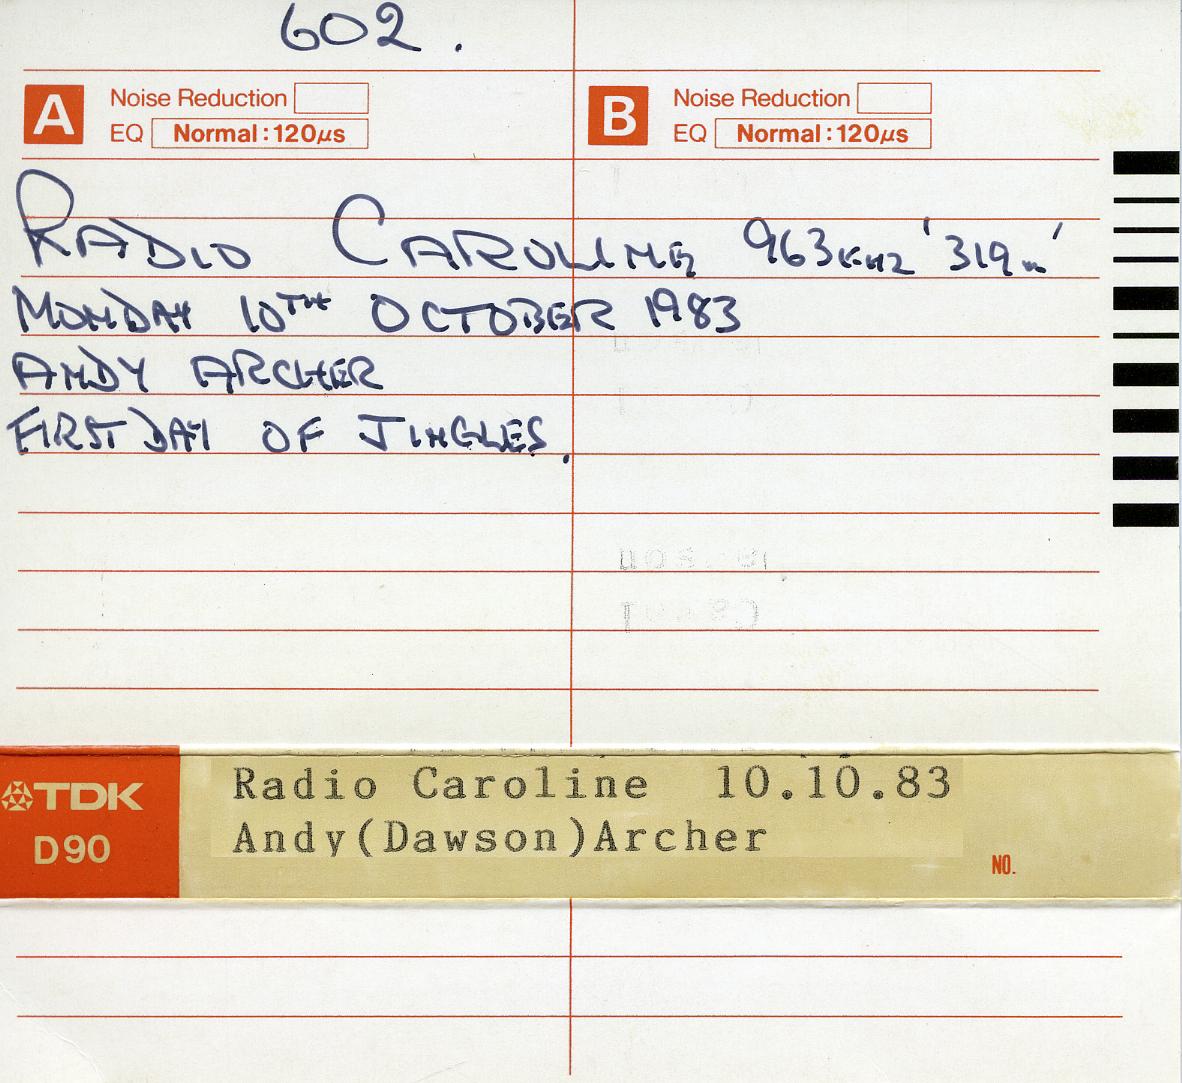 602.
A Noise Reduction
EQ Normal:120μs
B Noise Reduction
EQ Normal:120μs
RADIO CAROLINE 963KHZ '319m'
MONDAY 10TH OCTOBER 1983
ANDY ARCHER
FIRST DAY OF JINGLES.
TDK
D90
Radio Caroline 10.10.83
Andy(Dawson)Archer
NO.